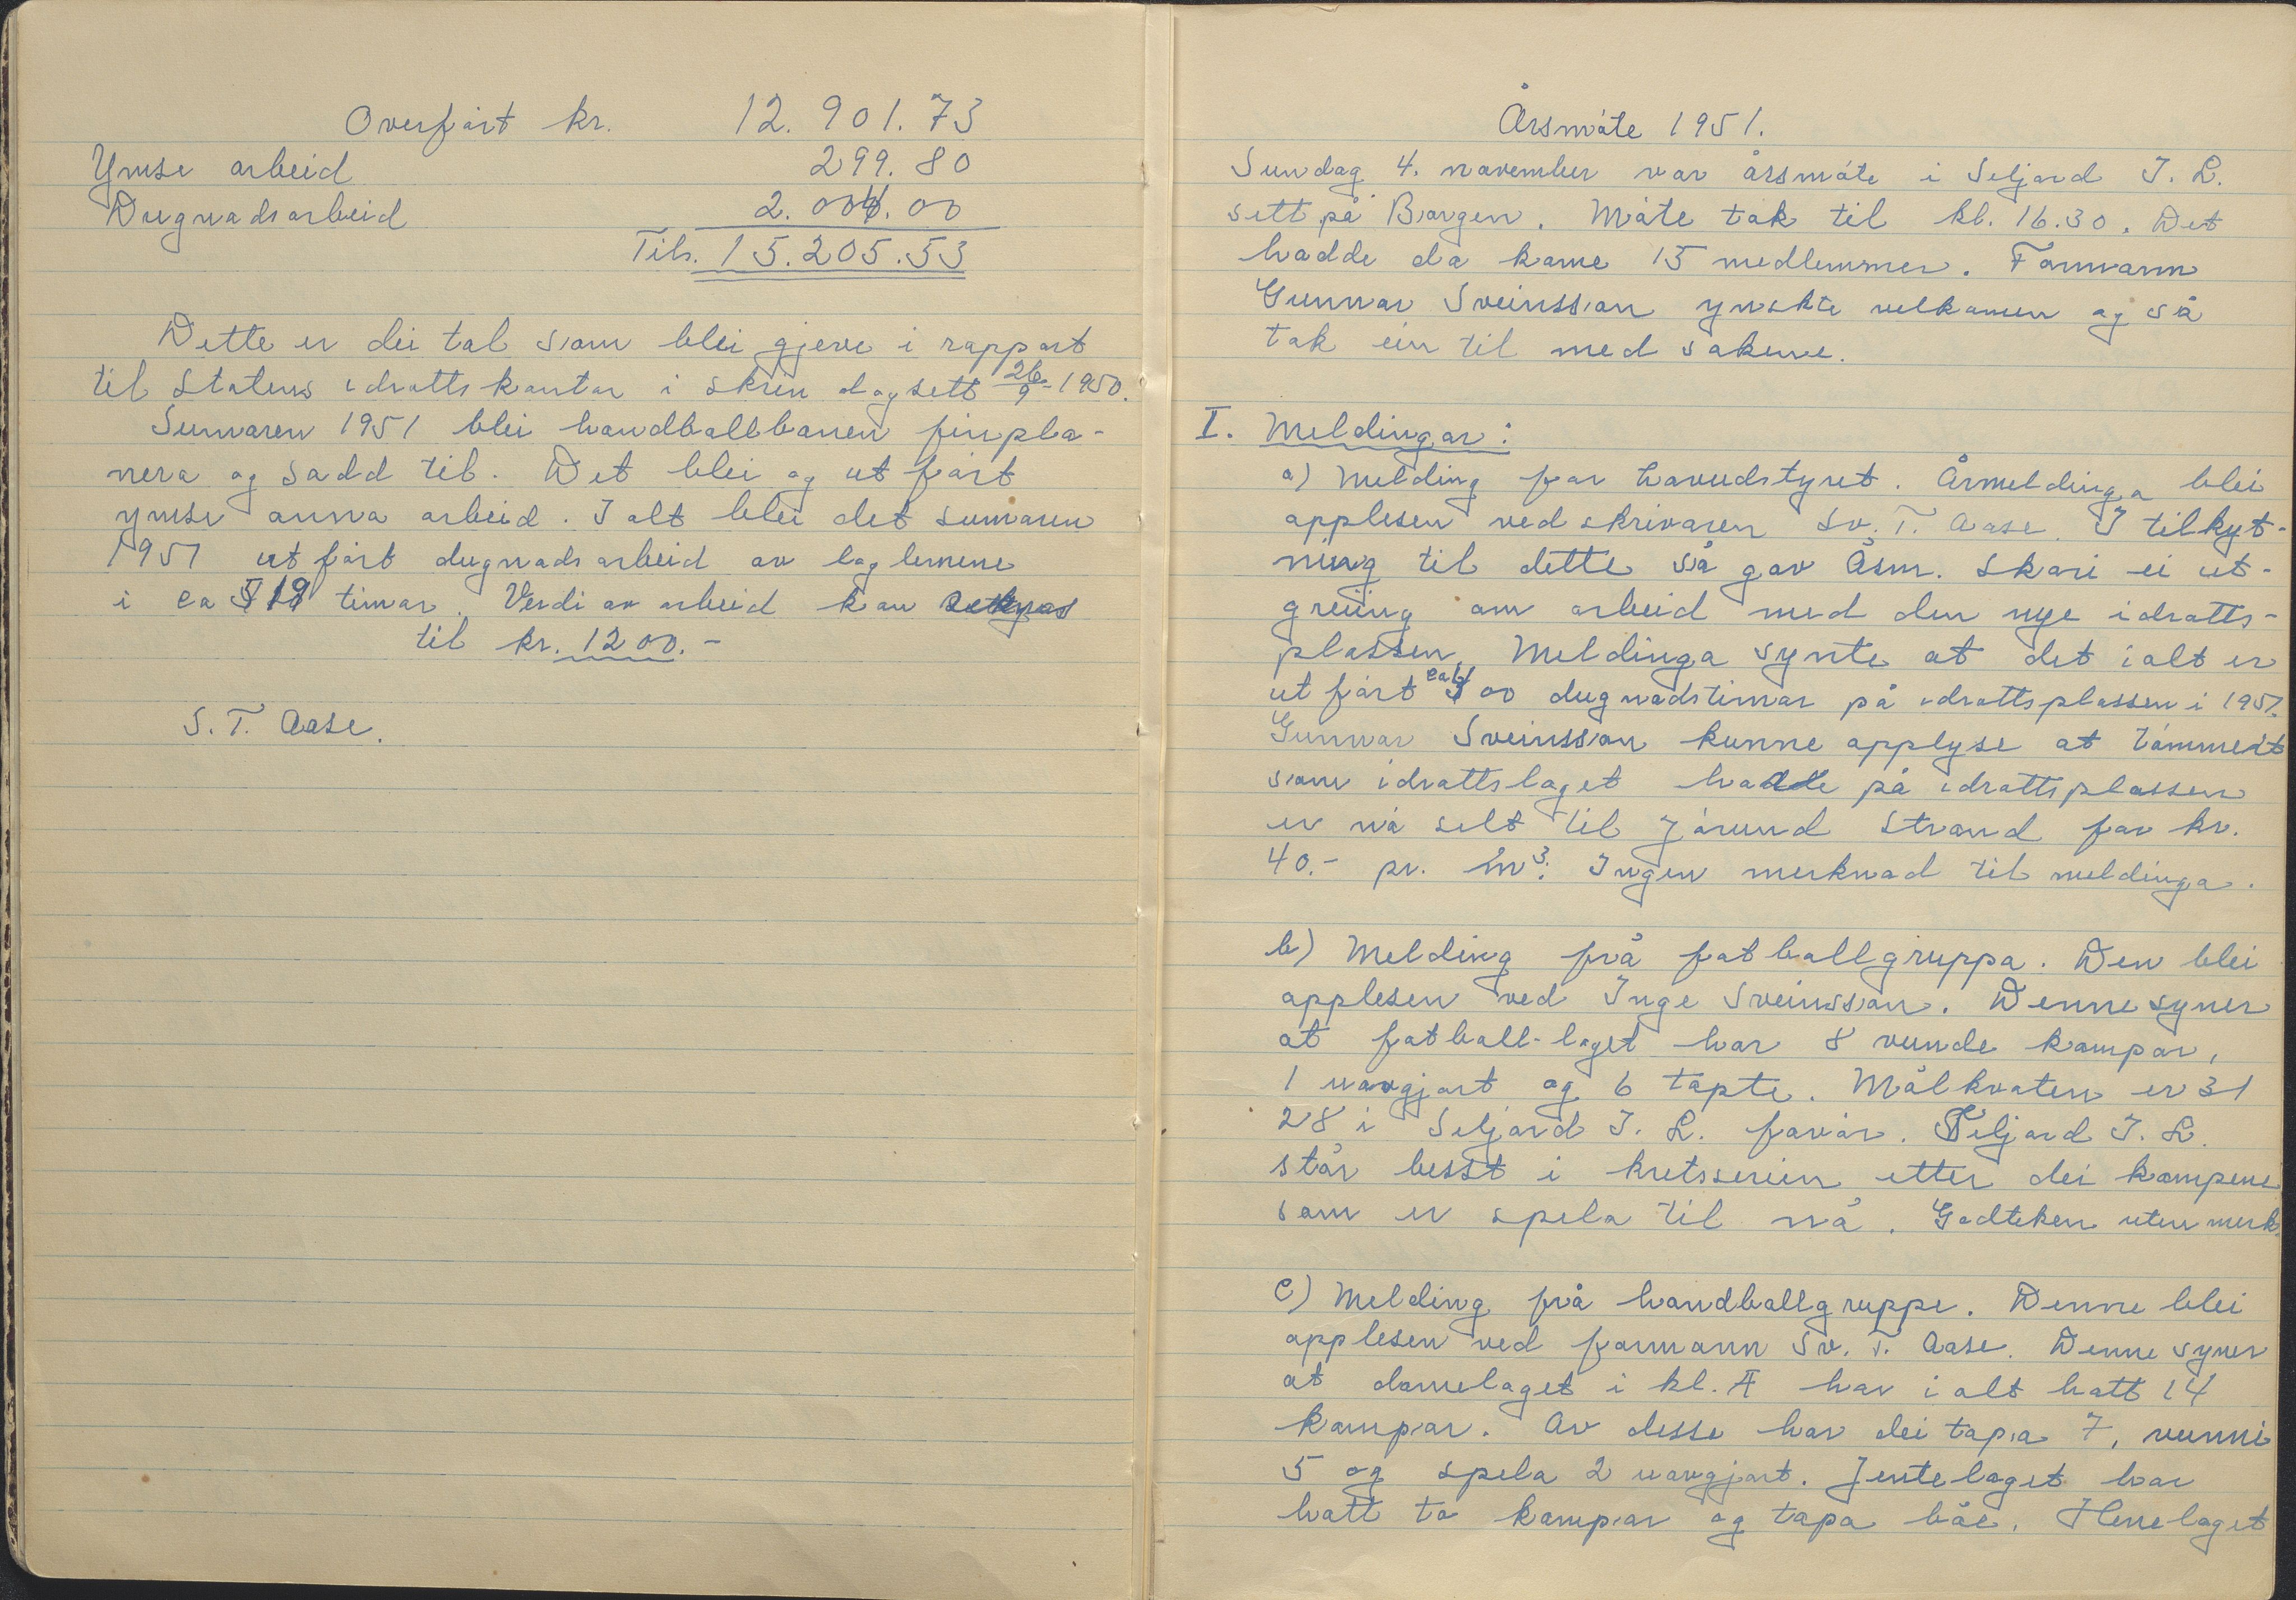 Overført kr. 12.901.73
Ymse arbeid 299.80
Dugnadsarbeid 2.004.00
Tils. 15.205.53
Dette er dei tal som blei gjeve i rapport
til Statens idrottskontor i skriv dagsett 26/9-1950.
Sumaren 1951 blei handballbanen finpla-
nera og sådd til. Det blei og utført
ymse anna arbeid. I alt blei det sumaren
1951 utført dugnadsarbeid av laglemene
i ca timar. Verdi av arbeid kan
til kr. 1200.-
S. T. Aase.
Årsmøte 1951.
Sundag 4. november var årsmøte i Seljord I. L.
sett på Borgen. Møte tok til kl. 16.30. Det
hadde då kome 15 medlemmer. Formann
Gunnar Sveinsson ynskte velkomen og så
tok ein til med sakene.
I. Meldingar:
a) Melding for hovudstyret. Årmeldinga blei
opplesen ved skrivaren Sv. T. Aase. I tilkyt-
ning til dette så gav Åsm. Skori ei ut-
greiing om arbeid med den nye idrotts-
plassen. Meldinga synte at det ialt er
utført ca 600 dugnadstimar på idrottsplassen i 1951.
Gunnar Sveinsson kunne opplyse at tømmeret
som idrottslaget hadde på idrottsplassen
er nå selt til Jørund Strand for kr.
40.- pr. m³. Ingen merknad til meldinga.
b) Melding frå fotballgruppa. Den blei
opplesen ved Inge Sveinsson. Denne syner
at fotball-laget har 8 vunde kampar,
1 uavgjort og 6 tapte. Målkvoten er 31
28 i Seljord I. L. favør. Seljord I. L.
står besst i kretsserien etter dei kampene
som er spela til nå. Godteken uten merk.
c) Melding frå handballgruppe. Denne blei
opplesen ved formann Sv. T. Aase. Denne syner
at damelaget i kl. A har i alt hatt 14
kampar. Av desse har dei tapa 7, vunni
5 og spela 2 uavgjort. Jentelaget har
hatt to kampar og tapa båe. Herrelaget